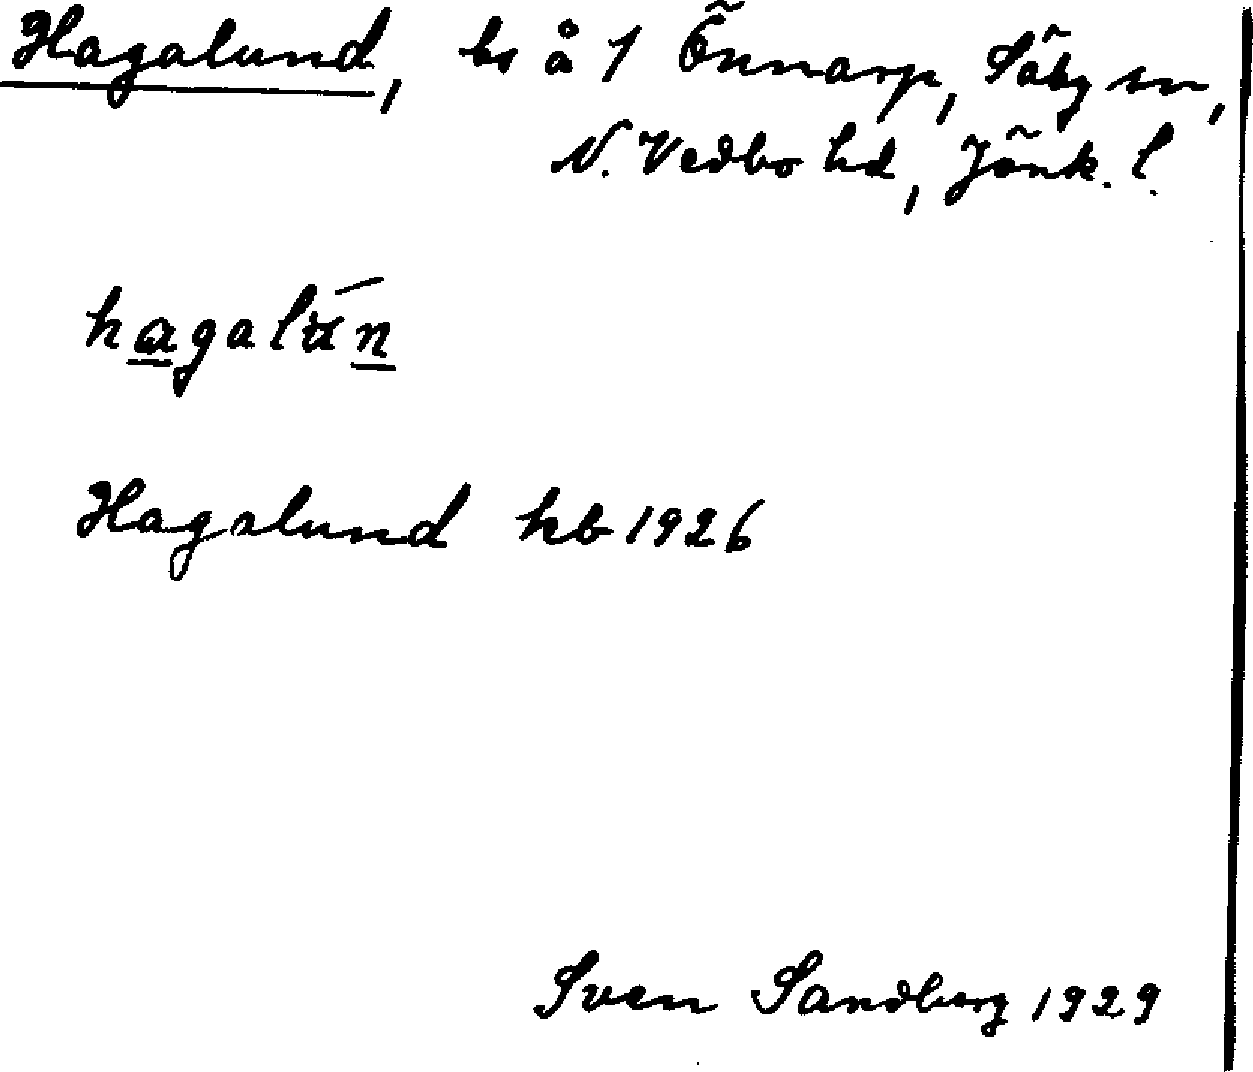 Hagalund, bs å 1 Önnarp, Säby sn,
N. Vedbo hd, Jönk. l.
hagalún
Hagalund kb 1926
Sven Sandberg 1929